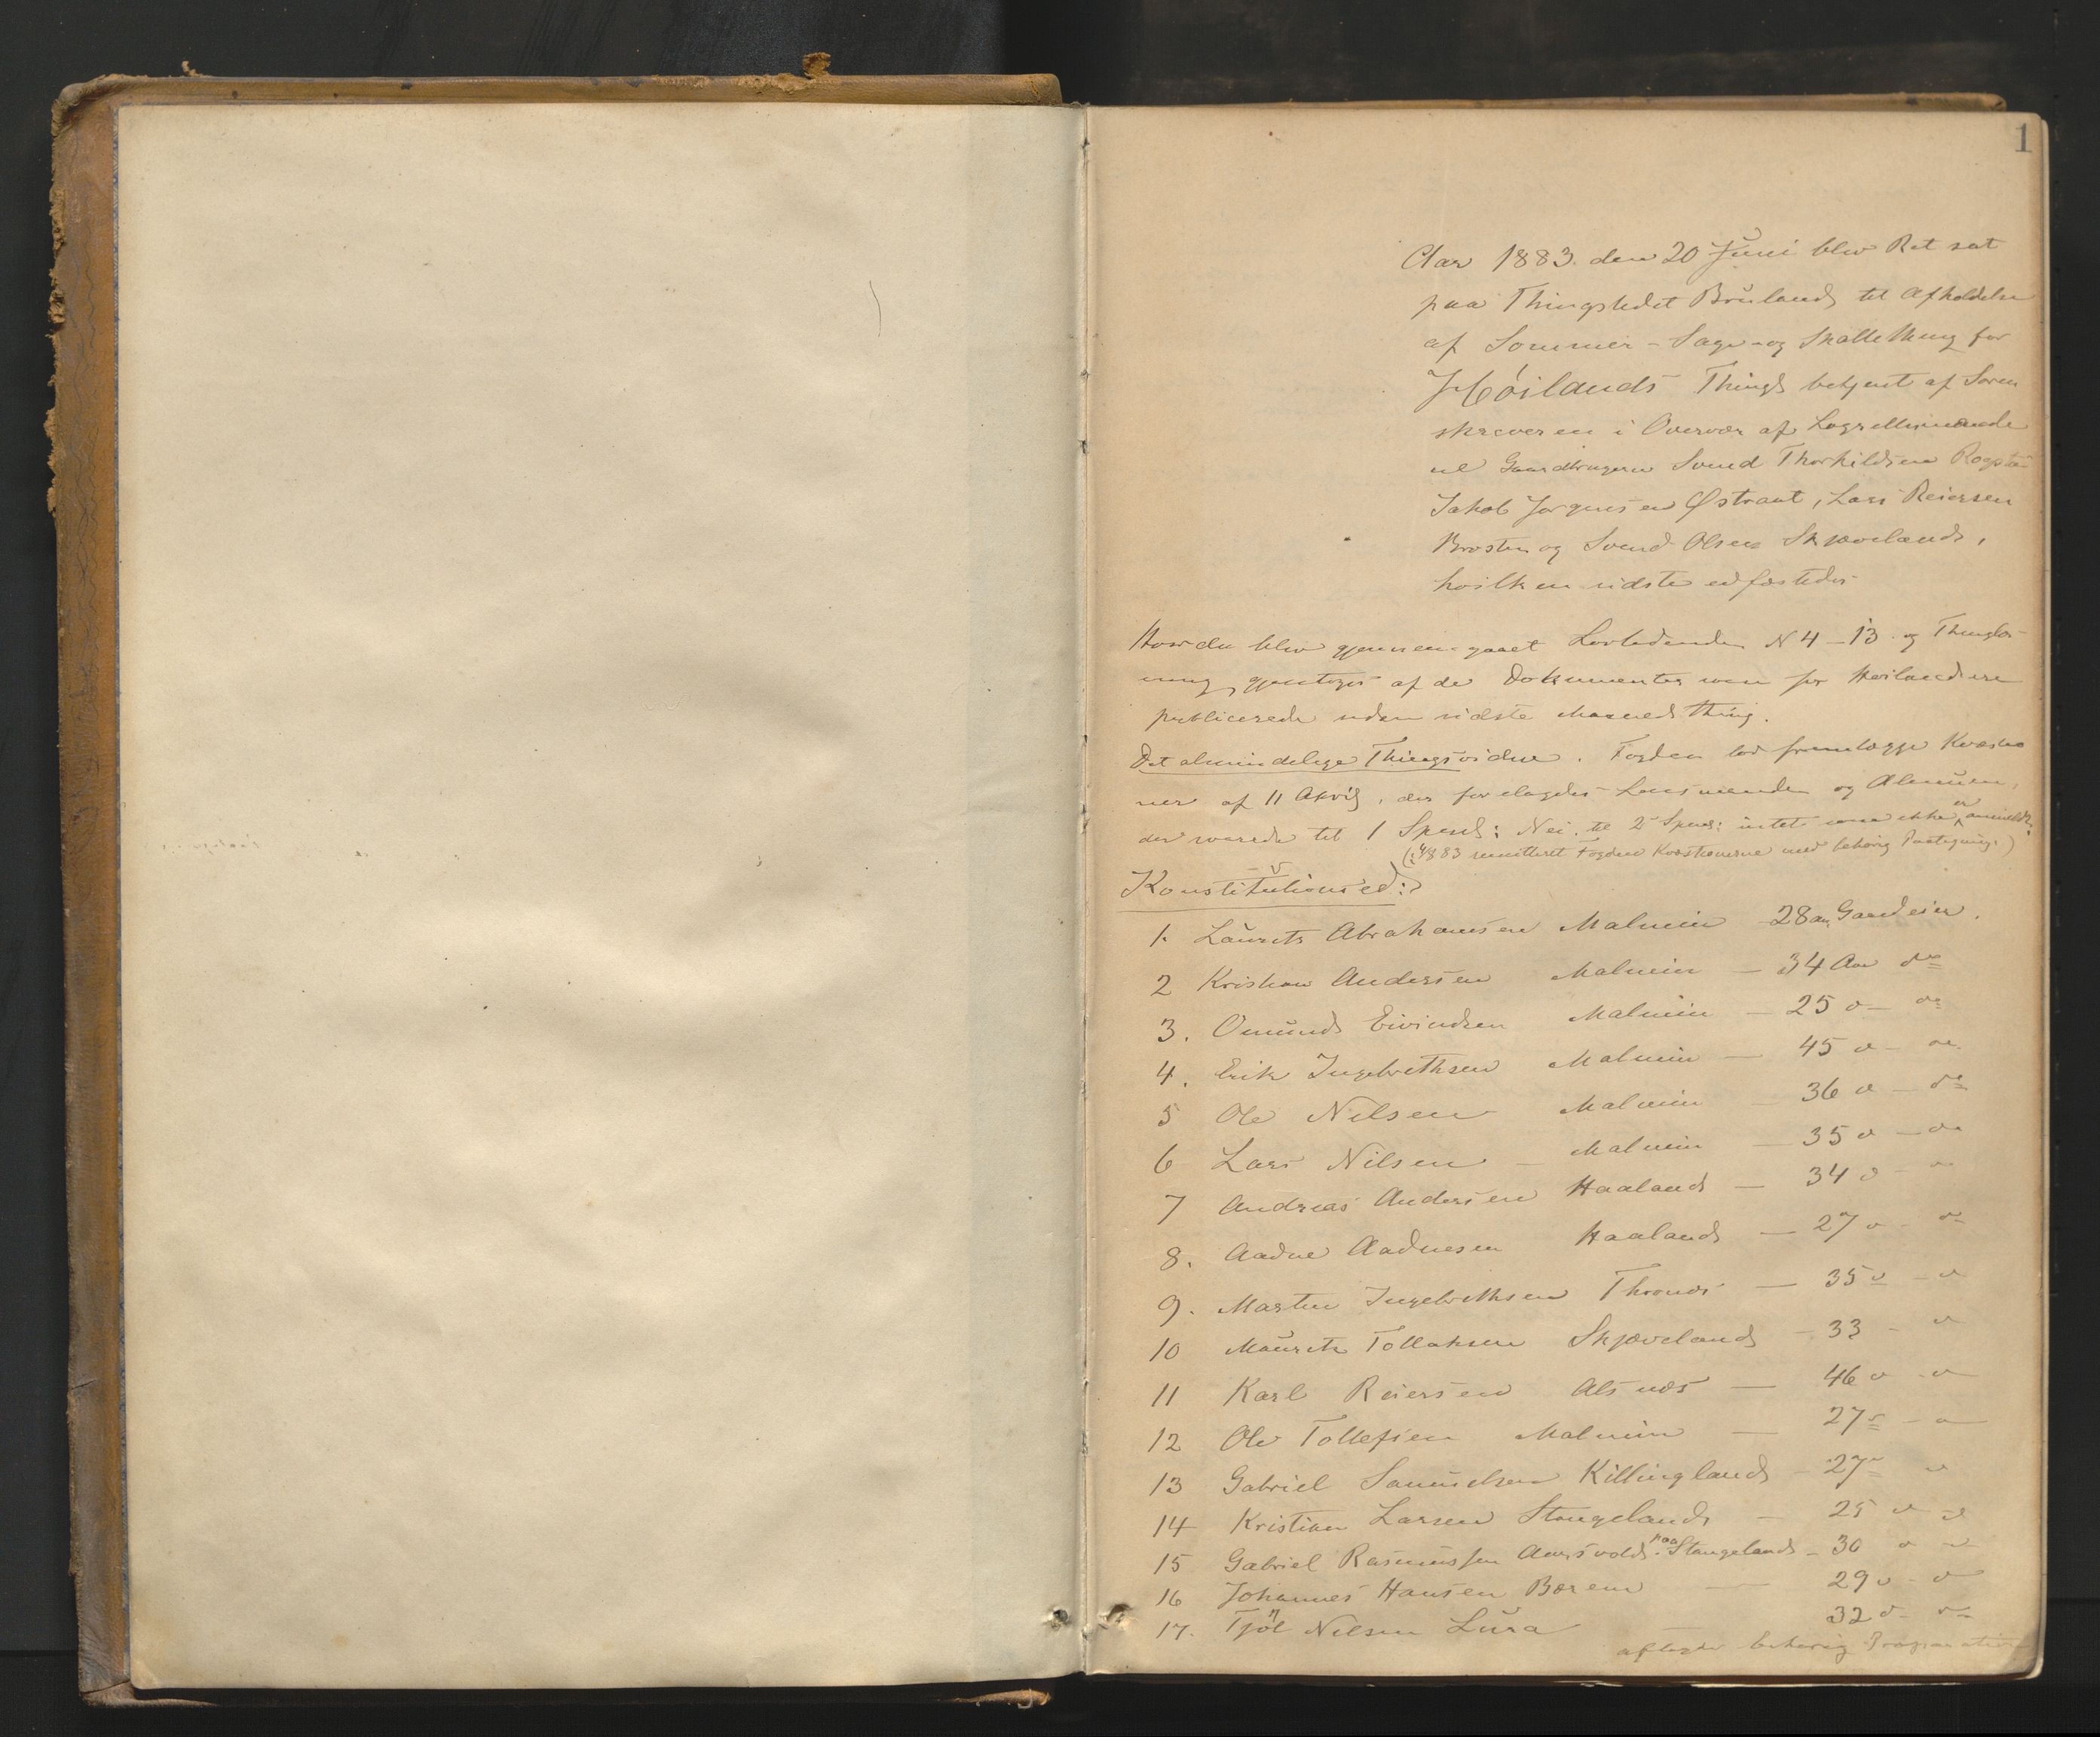 1
Aar 1883. den 20 Juni blev Ret sat
paa Thingstedet Brüland til Afholdelse
af Sommer-Sage- og Skattething for
Høilands Thingl betjent af Soren
skriveren i Overvær af Lagrettemænde
ne Gaardbrugerne Svend Thorkildsen Rogsta
Jakob Jørgensen Østraat, Lars Reiersen
Brosten og Svend Olsen Skjæveland,
hvilken sidste edfæstedes
Hvorda blev gjennemgaaet Lovtidende N 4-13. og Thinglæs
ning gjentoges af de Dokumenter som for Høiland ere
publicerede siden sidste Maanedsthing.
Det almindelige Thingsvidne. Fogden lod fremlægge Kvæstio
ner af 11 April, der forelagdes Lensmanden og Almuen,
der svarede til 1 Spsml: Nei. til 2 Spms: intet som ikke er anmeldt.
83 remitteret Fogden Kvæstionerne med behørig Paategning.)
Konstitutionsed:
1. Laurits Abrahamsen Malmin 28 aar Gaardeier.
2 Kristian Andersen Malmin — 34 Aar do
3. Omund Eivindsen Malmin — 25 o — do
4. Erik Ingebrethsen Malmin — 45 o — do
5 Ole Nilsen Malmin — 36 o — do
6 Lars Nilsen — Malmin — 35 o — do
7 Andreas Andersen Haaland — 34 o — o
8. Aadne Aadnesen Haaland — 27 o — do
9. Martin Ingebrethsen — 35 o — o
10 Maurits Tollaksen Skjæveland — 33 — o
11 Karl Reiersen Alsnes — 46 o — o
12 Ole Tollefsen Malmin — 27 o — o
13 Gabriel Samuelsen Killingland — 27 o
14 Kristian Larsen Stangeland — 25 o o
15 Gabriel Rasmussen paa Stangeland — 30 o o
16 Johannes Hansen Bærem — 29 o — o
17. Tjøl Nilsen Lura 32 o — do
aflagde behørig